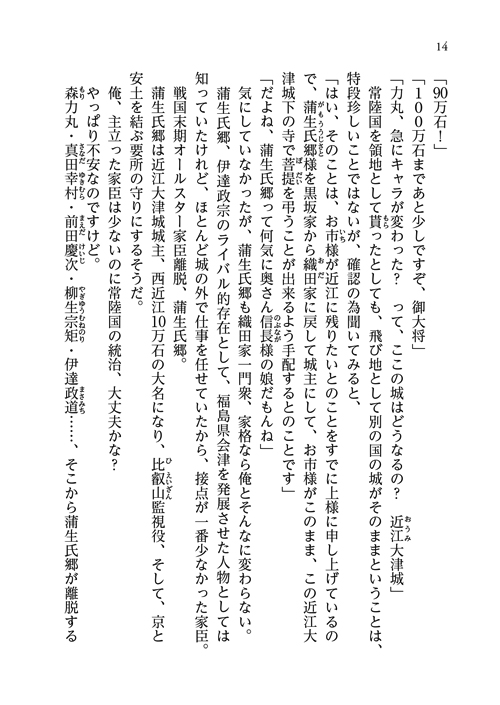 14
「90万石！」
「100万石まであと少しですぞ、御大将」
「力丸、急にキャラが変わった？　って、ここの城はどうなるの？　近江大津城」
常陸国を領地として貰ったとしても、飛び地として別の国の城がそのままということは、
特段珍しいことではないが、確認の為聞いてみると、
「はい、そのことは、お市様が近江に残りたいとのことをすでに上様に申し上げているの
で、蒲生氏郷様を黒坂家から織田家に戻して城主にして、お市様がこのまま、この近江大
津城下の寺で菩提を弔うことが出来るよう手配するとのことです」
「だよね、蒲生氏郷って何気に奥さん信長様の娘だもんね」
気にしていなかったが、蒲生氏郷も織田家一門衆、家格なら俺とそんなに変わらない。
蒲生氏郷、伊達政宗のライバル的存在として、福島県会津を発展させた人物としては
知っていたけれど、ほとんど城の外で仕事を任せていたから、接点が一番少なかった家臣。
戦国末期オールスター家臣離脱、蒲生氏郷。
蒲生氏郷は近江大津城城主、西近江10万石の大名になり、比叡山監視役、そして、京と
安土を結ぶ要所の守りにするそうだ。
俺、主立った家臣は少ないのに常陸国の統治、大丈夫かな？
やっぱり不安なのですけど。
森力丸・真田幸村・前田慶次・柳生宗矩・伊達政道……、そこから蒲生氏郷が離脱する